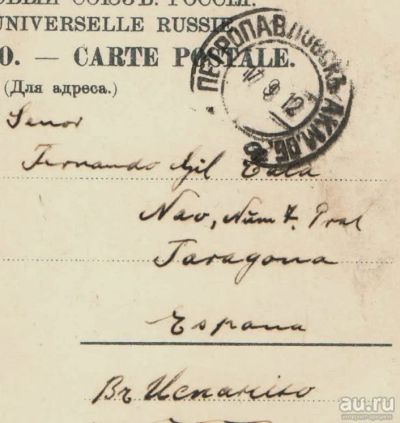 СОЮЗЪ. РОССІЯ.
UNIVERSELLE RUSSIE
О. — CARTE POSTALE.
(Для адреса.)
ПЕТРОПАВЛОВСКЪ АКМ. ОБ.
9 12
Senor
Fernando Gil
Nao, Num 7. Pral
Taragona
Espana
Въ Испанію
au.ru